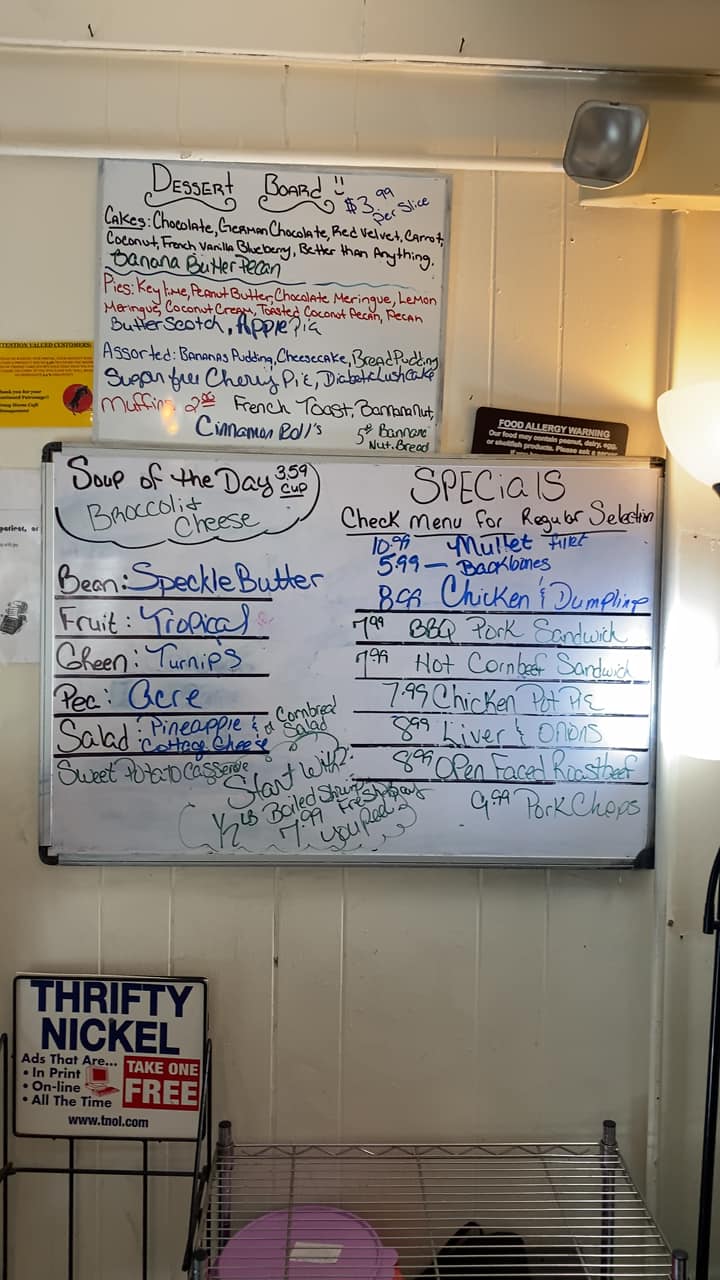 DESSERT BOARD!!
$3.99 per Slice
Cakes: Chocolate, German Chocolate, Red Velvet, Carrot,
Coconut, French Vanilla Blueberry, Better than Anything,
Banana Butter Pecan
Pies: Key lime, Peanut Butter, Chocolate Meringue, Lemon
Meringue, Coconut Cream, Toasted Coconut Pecan, Pecan
ButterScotch, Apple Pie
Assorted: Bananas Pudding, Cheesecake, Bread Pudding
Sugar free Cherry Pie, Cake
Muffins 2.00 French Toast, Banana Nut,
Cinnamon Roll's
5.00 Banana
Nut. Bread
ATTENTION VALUED CUSTOMERS:
FOOD ALLERGY WARNING
Our food may contain peanut, dairy, egg,
or shellfish products.
Soup of the Day 3.59
CUP
Broccoli &
Cheese
Bean: Speckle Butter
Fruit: Tropical
Green: Turnips
Pea: Acre
Salad: Pineapple &
Cottage Cheese
or Cornbread
Salad
Sweet Potato Casserole
Start With?
1/2 LB Boiled Shrimp
7.99 you Peel
SPECiAlS
Check Menu For Regular Selection
10.99 - Mullet fillet
5.99 - Backbones
8.99 Chicken & Dumplings
7.99 BBQ Pork Sandwich
7.99 Hot Cornbeef Sandwich
7.99 Chicken Pot Pie
8.99 Liver & Onions
8.99 Open Faced Roastbeef
9.99 Pork Chops
THRIFTY
NICKEL
Ads That Are...
• In Print
• On-line
• All The Time
TAKE ONE
FREE
www.tnol.com